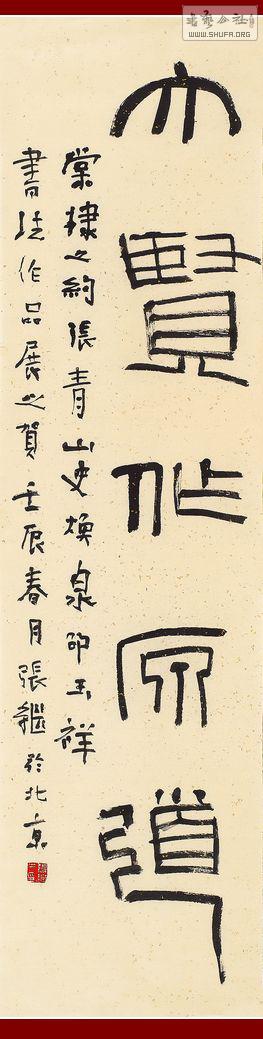 書藝公社
WWW.SHUFA.ORG
大賢作原道
棠棣之約張青山史煥泉邵玉祥
書法作品展之賀壬辰春月張繼於北京